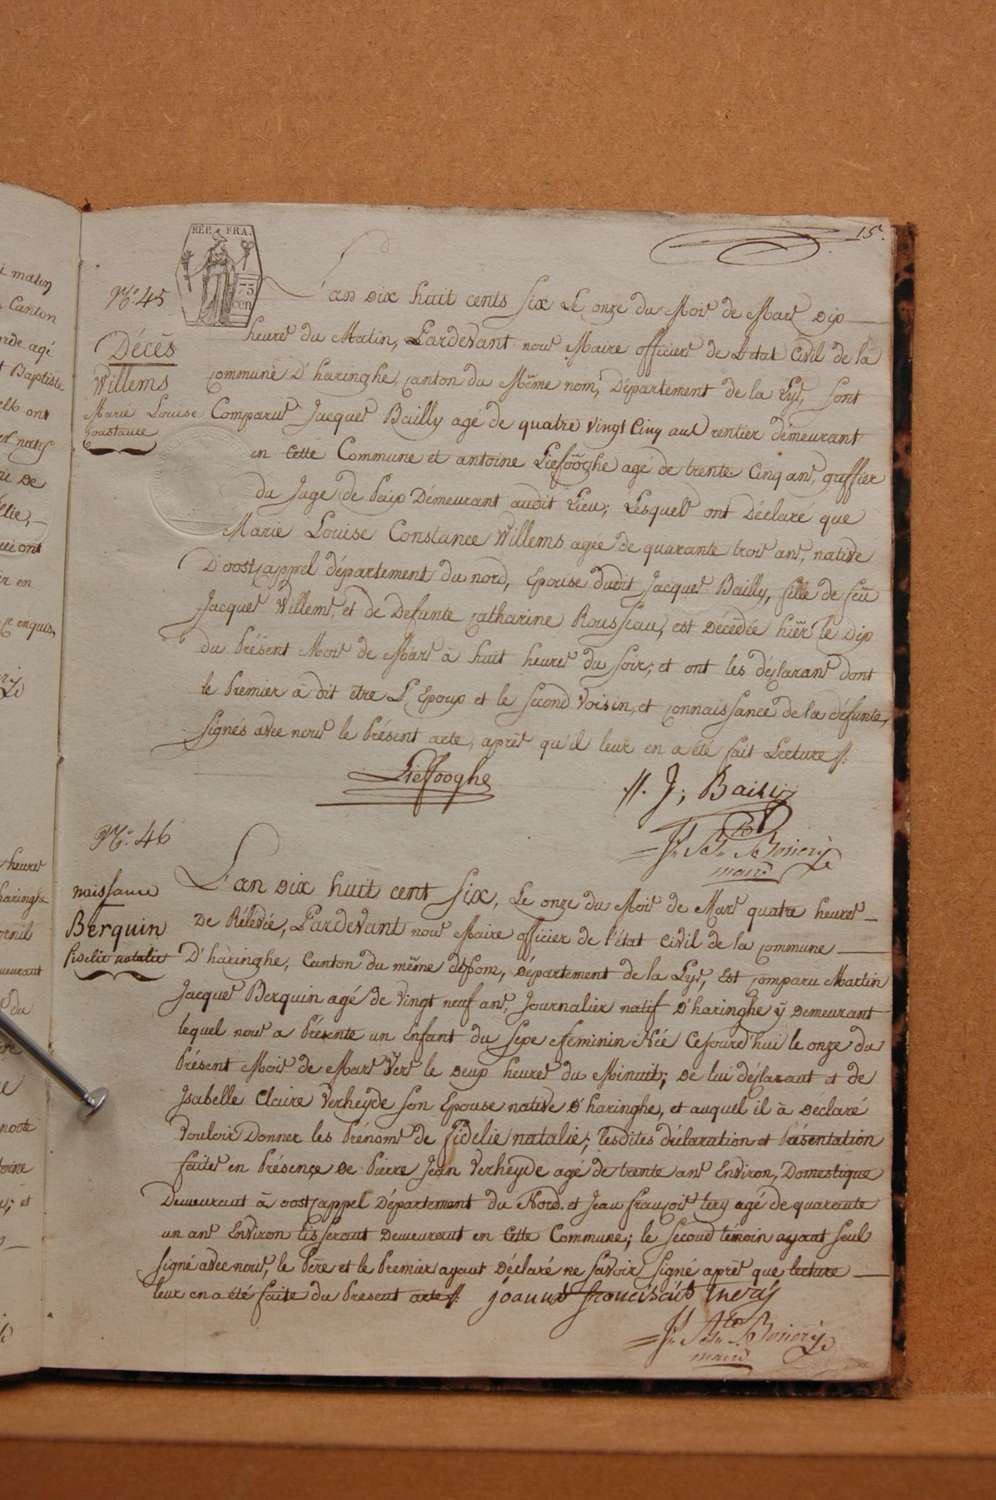 15.
RÉP. FRA.
75
cen
N.° 45
Décès
Willems
Marie Louise
Constance
L'an dix huit cents six Le onze du Mois de Mars dix
heures du Matin, Pardevant nous Maire officier de L'état Civil de la
Commune D'haringhe, canton du Même nom, Département de la Lys, sont
Comparus Jacques Bailly agé de quatre vingt Cinq ans rentier demeurant
en Cette Commune et antoine Liefooghe agé de trente Cinq ans, greffier
du Juge de Paix Demeurant audit Lieu; Lesquels ont Déclaré que
Marie Louise Constance Willems agée de quarante trois ans, native
D'oostcappel département du nord, Epouse dudit Jacques Bailly, fille de feu
Jacques Willems et de Defunte Catharine Rousseau, est décédée hier le dix
du Présent Mois de Mars à huit heures du soir; et ont les déclarans dont
le Premier à dit être L'Epoux et le second Voisin, et Connaissance de la défunte,
Signés avec nous le Présent acte, après qu'il leur en a été fait Lecture //.
Lieffooghe
//. J; Bailij
maire
N.° 46
naissance
Berquin
fidelie natalie
L'an dix huit cent six, Le onze du Mois de Mars quatre heures
De Rélevée, Pardevant nous Maire officier de l'état civil de la commune
D'haringhe, Canton du même , Département de la Lys, est comparu Martin
Jacques Berquin agé de Vingt neuf ans, Journalier natif D'haringhe ÿ Demeurant
lequel nous a Présenté un Enfant du sexe féminin Née Cejourd'hui le onze du
Présent Mois de Mars Vers le deux heures du Minuit; De lui déclarant et de
Isabelle Claire Verheyde son Epouse native D'haringhe, et auquel il à Déclaré
Vouloir Donner les Prénoms de fidélie natalie; lesdites déclaration et Présentation
faites en Présence De Pierre Jean Verheyde agé de trente ans Environ, Domestique
Demeurant à oostcappel Département du Nord et Jean françois agé de quarante
un ans Environ tisserant Demeurant en Cette Commune; le second témoin ayant seul
Signé avec nous, le Père et le Premier ayant Déclaré ne savoir signé après que lecture
leur en a été faite du Présent acte //. joannes franciscus
maire